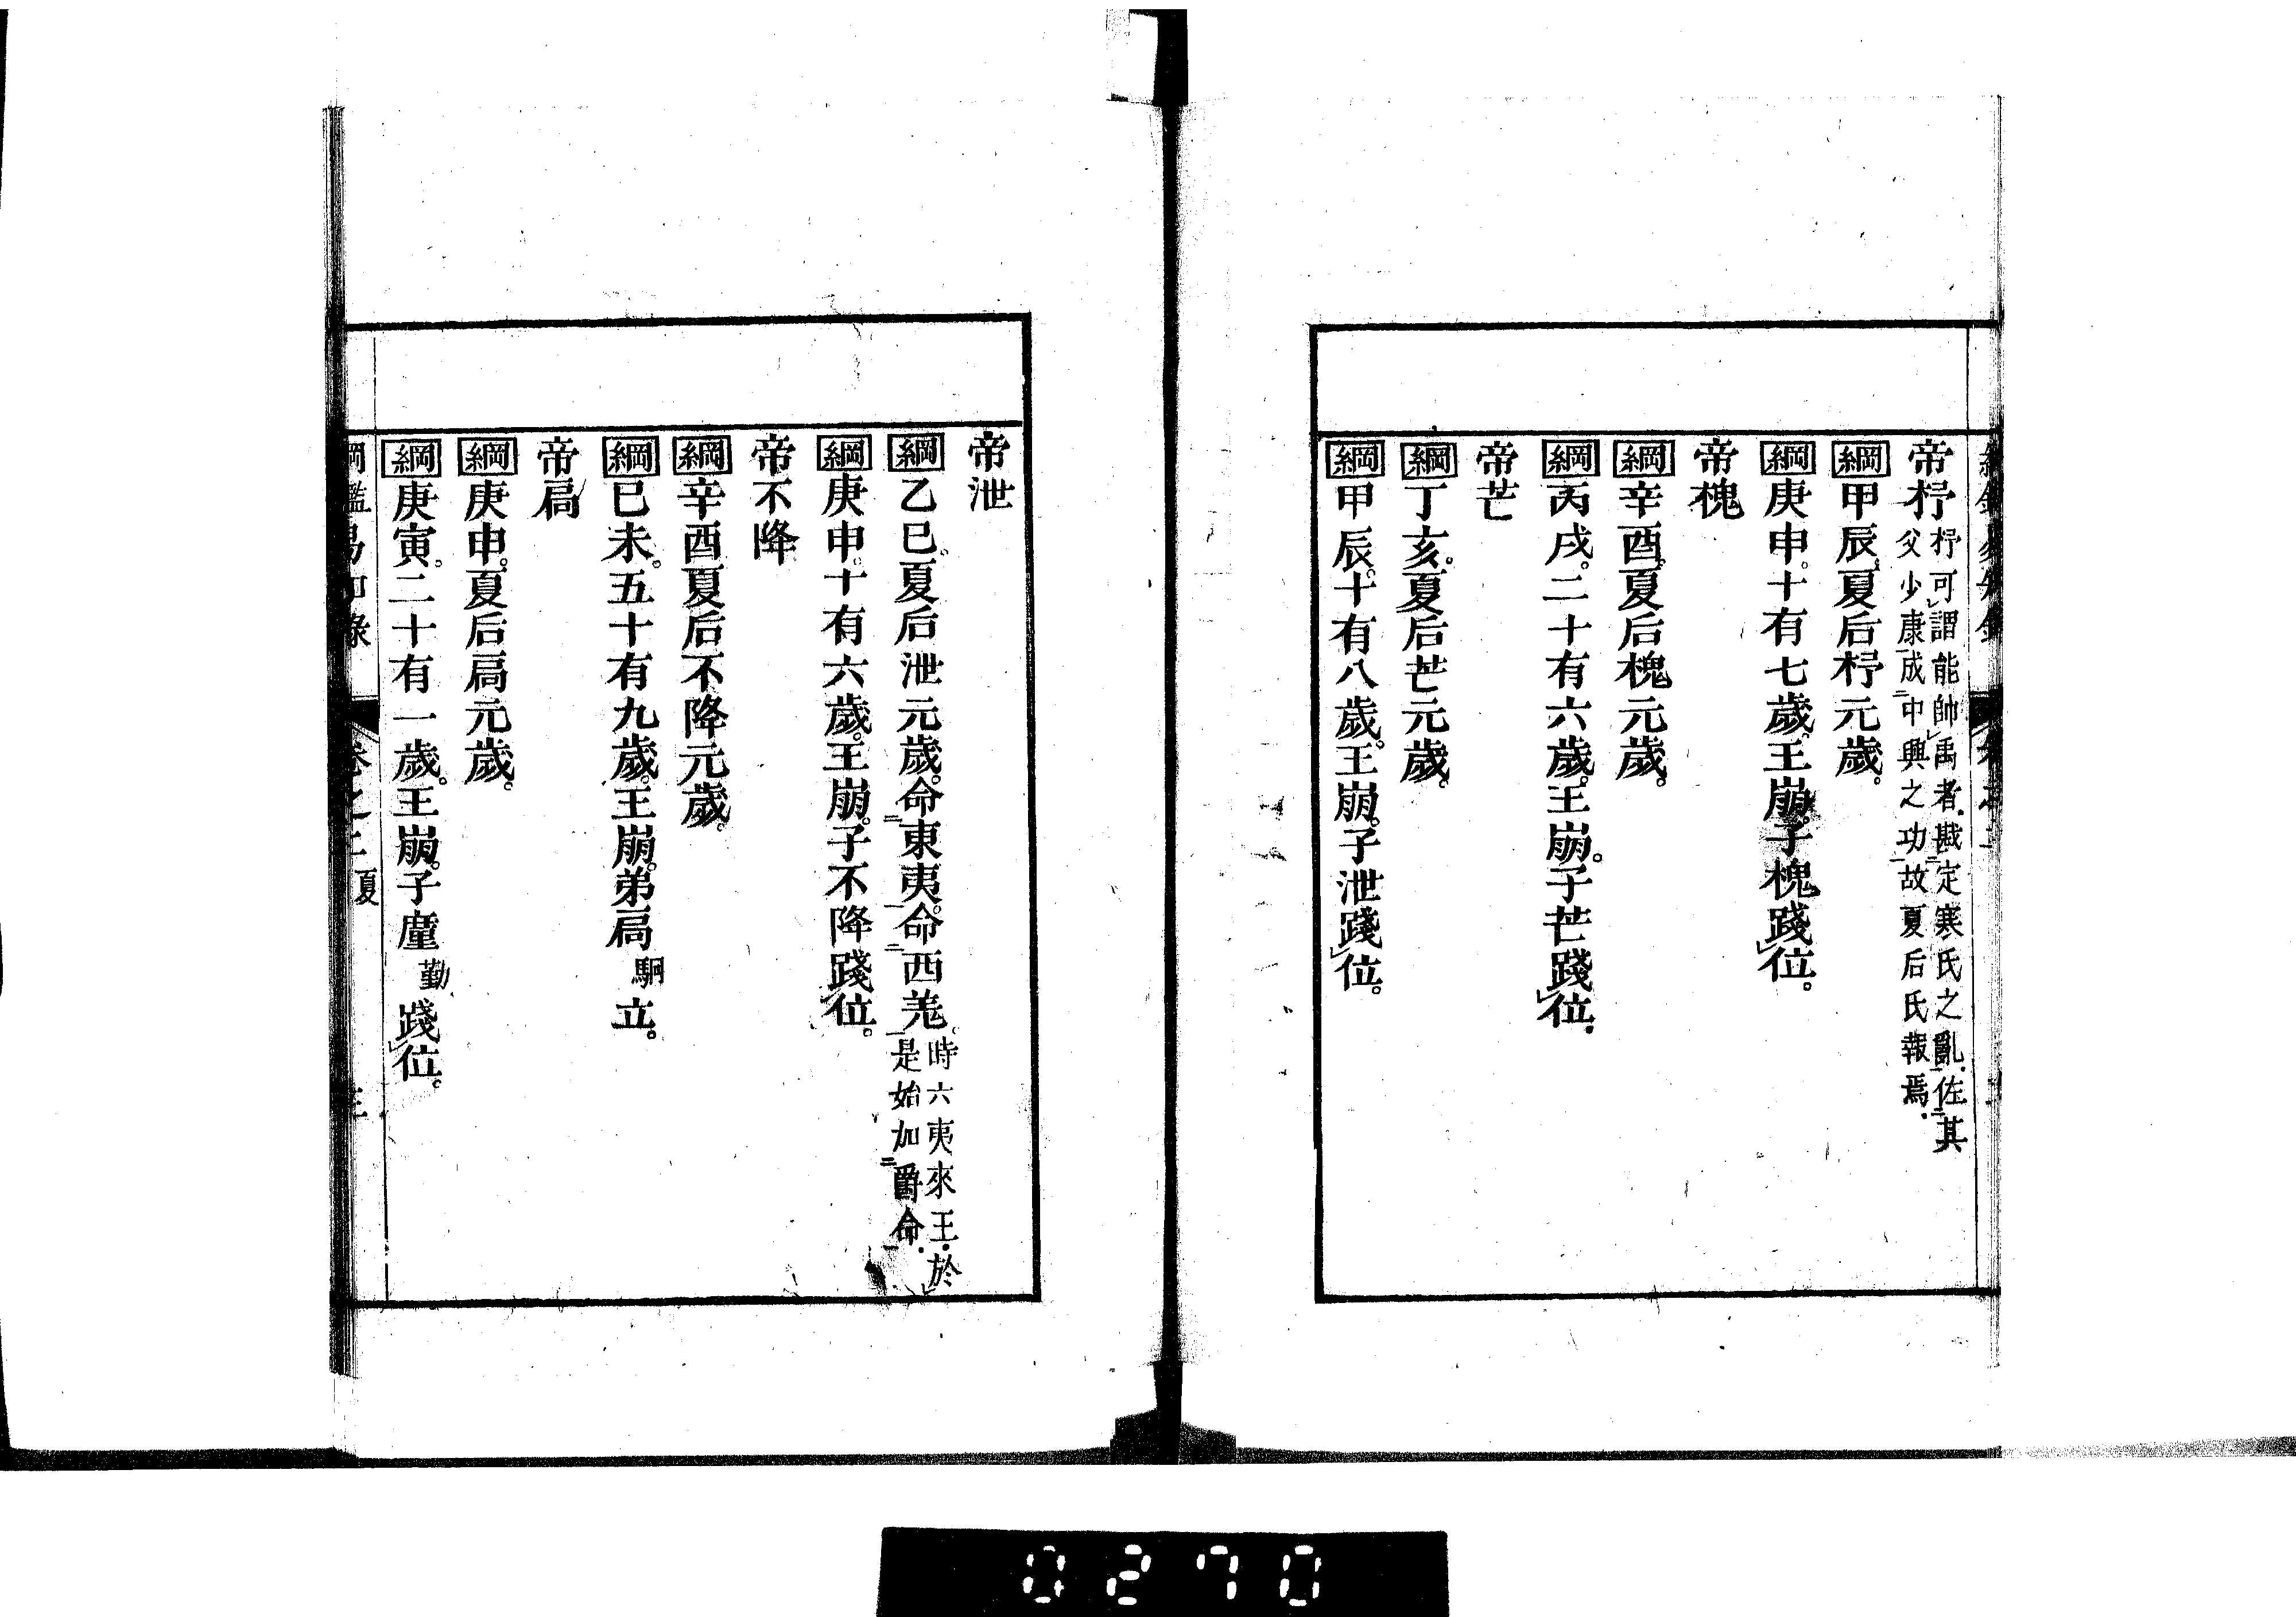 帝杼 杼可謂能帥禹者戡定寒氏之亂佐其
父少康成中興之功故夏后氏報焉
綱 甲辰夏后杼元歲。
綱 庚申。十有七歲。王崩。子槐踐位。
帝槐
綱 辛酉。夏后槐元歲。
綱 丙戌。二十有六歲。王崩。子芒踐位。
帝芒
綱 丁亥。夏后芒元歲。
綱 甲辰。十有八歲。王崩。子泄踐位。
帝泄
綱 乙巳。夏后泄元歲。命東夷。命西羗。時六夷來王於
是始加爵命
綱 庚申。十有六歲。王崩。子不降踐位。
帝不降
綱 辛酉夏后不降元歲。
綱 已未。五十有九歲。王崩。弟扃駉立。
帝扃
綱 庚申。夏后扃元歲。
綱 庚寅。二十有一歲。王崩。子廑勤踐位。
卷之二 夏
0270